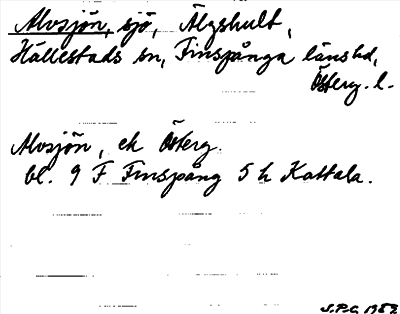 Alvsjön, sjö, Älgshult,
Hällestads sn, Finspånga länshd,
Österg. l.
Alvsjön, ek Österg.
bl. 9 F Finspång 5 h Kattala.
S.P.G. 1959